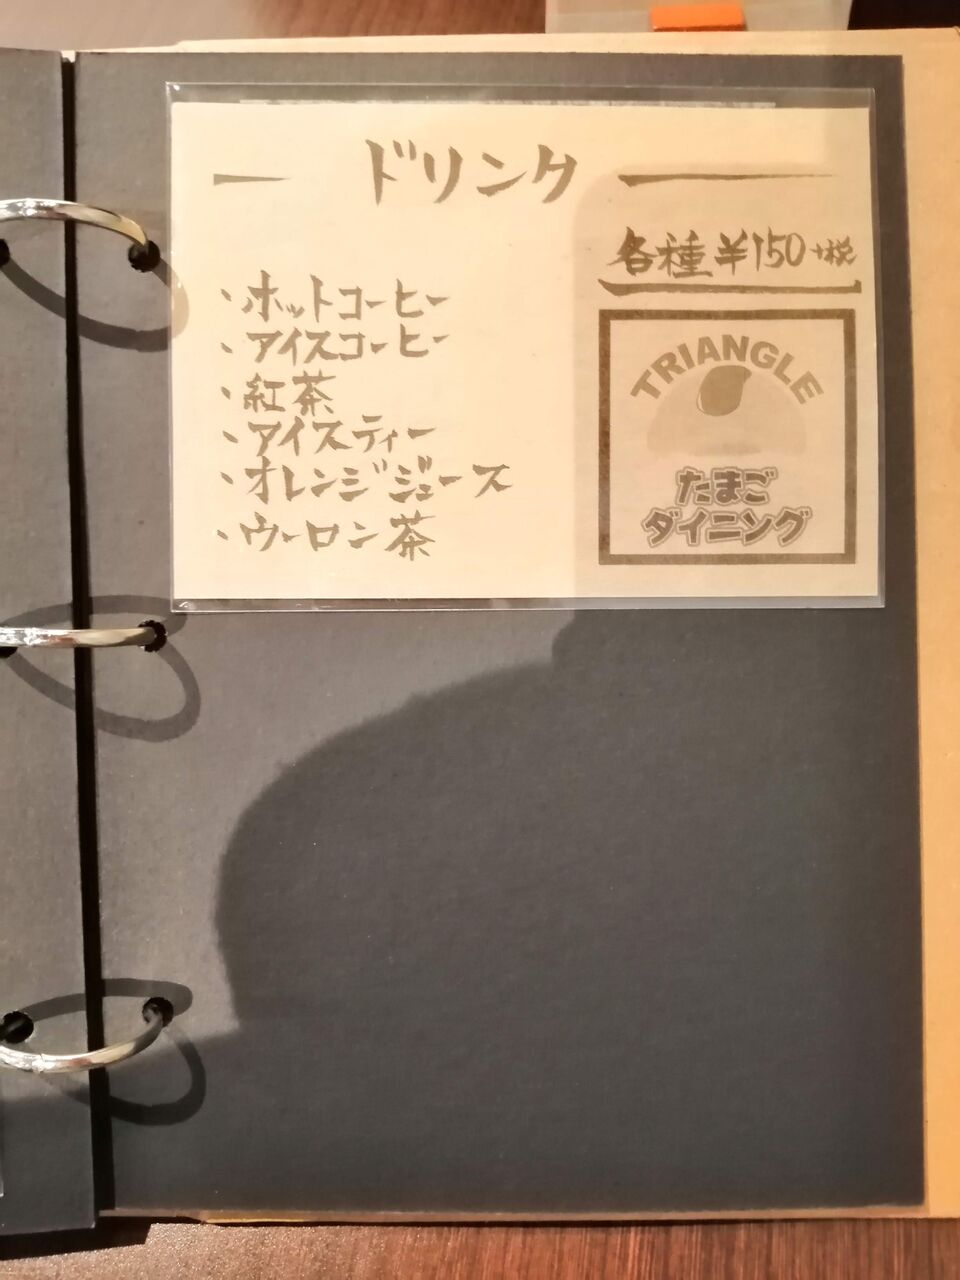 ドリンク
各種¥150+税
・ホットコーヒー
・アイスコーヒー
・紅茶
・アイスティー
・オレンジジュース
・ウーロン茶
TRIANGLE
たまご
ダイニング